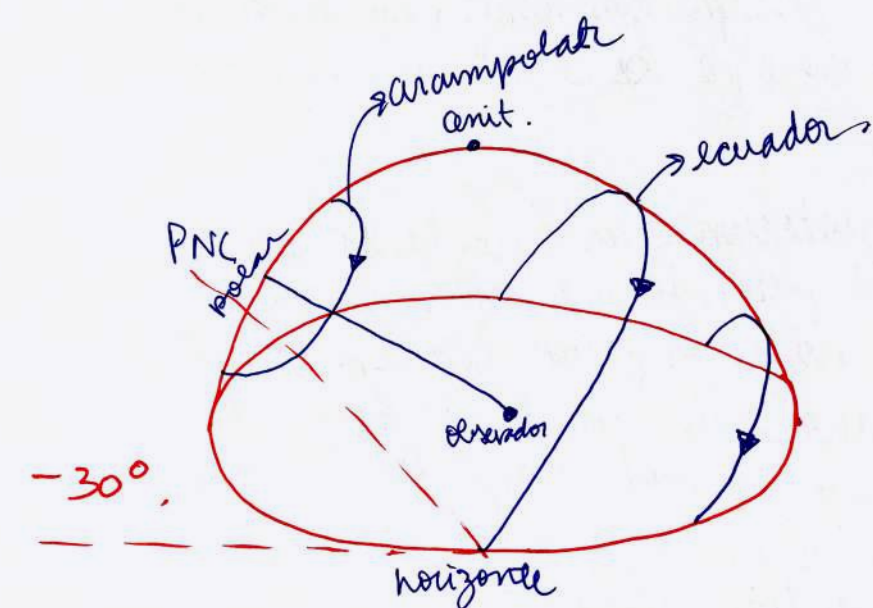 circumpolar
cenit.
ecuador
PNC
polar
observador
-30°.
horizonte